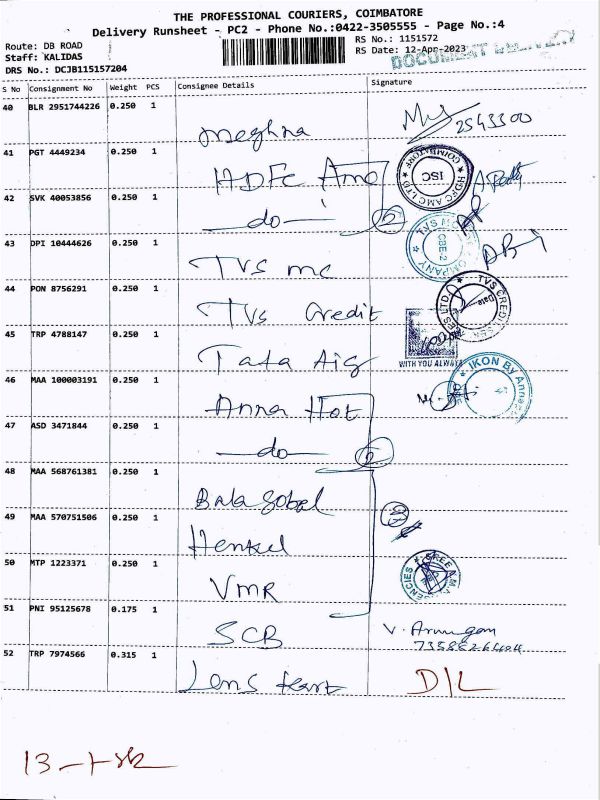 THE PROFESSIONAL COURIERS, COIMBATORE
Delivery Runsheet - PC2 - Phone No.:0422-3505555 - Page No.:4
Route: DB ROAD
RS No.: 1151572
Staff: KALIDAS
RS Date: 12-Apr-2023
DOCUMENT DELIVERY
DRS No.: DCJB115157204
S No Consignment No Weight PCS Consignee Details Signature
40 BLR 2951744226 0.250 1
Meghna 2543300
41 PGT 4449234 0.250 1
HDFC Amc
HDFC AMC LTD COIMBATORE ISC
42 SVK 40053856 0.250 1
do 2
43 DPI 10444626 0.250 1
TVS mc
TVS COMPANY CBE-2
44 PON 8756291 0.250 1
TVS Credit
TVS CREDIT LTD
45 TRP 4788147 0.250 1
Tata Aig
WITH YOU ALWAYS
46 MAA 100003191 0.250 1
Anna Hot
IKON By Anna
47 ASD 3471844 0.250 1
do 2
48 MAA 568761381 0.250 1
Bala gobal
49 MAA 570751506 0.250 1
Henkel 3
50 MTP 1223371 0.250 1
VMR
SREE AGENCIES
51 PNI 95125678 0.175 1
SCB V. Arumugam
52 TRP 7974566 0.315 1
Lens kart D/L